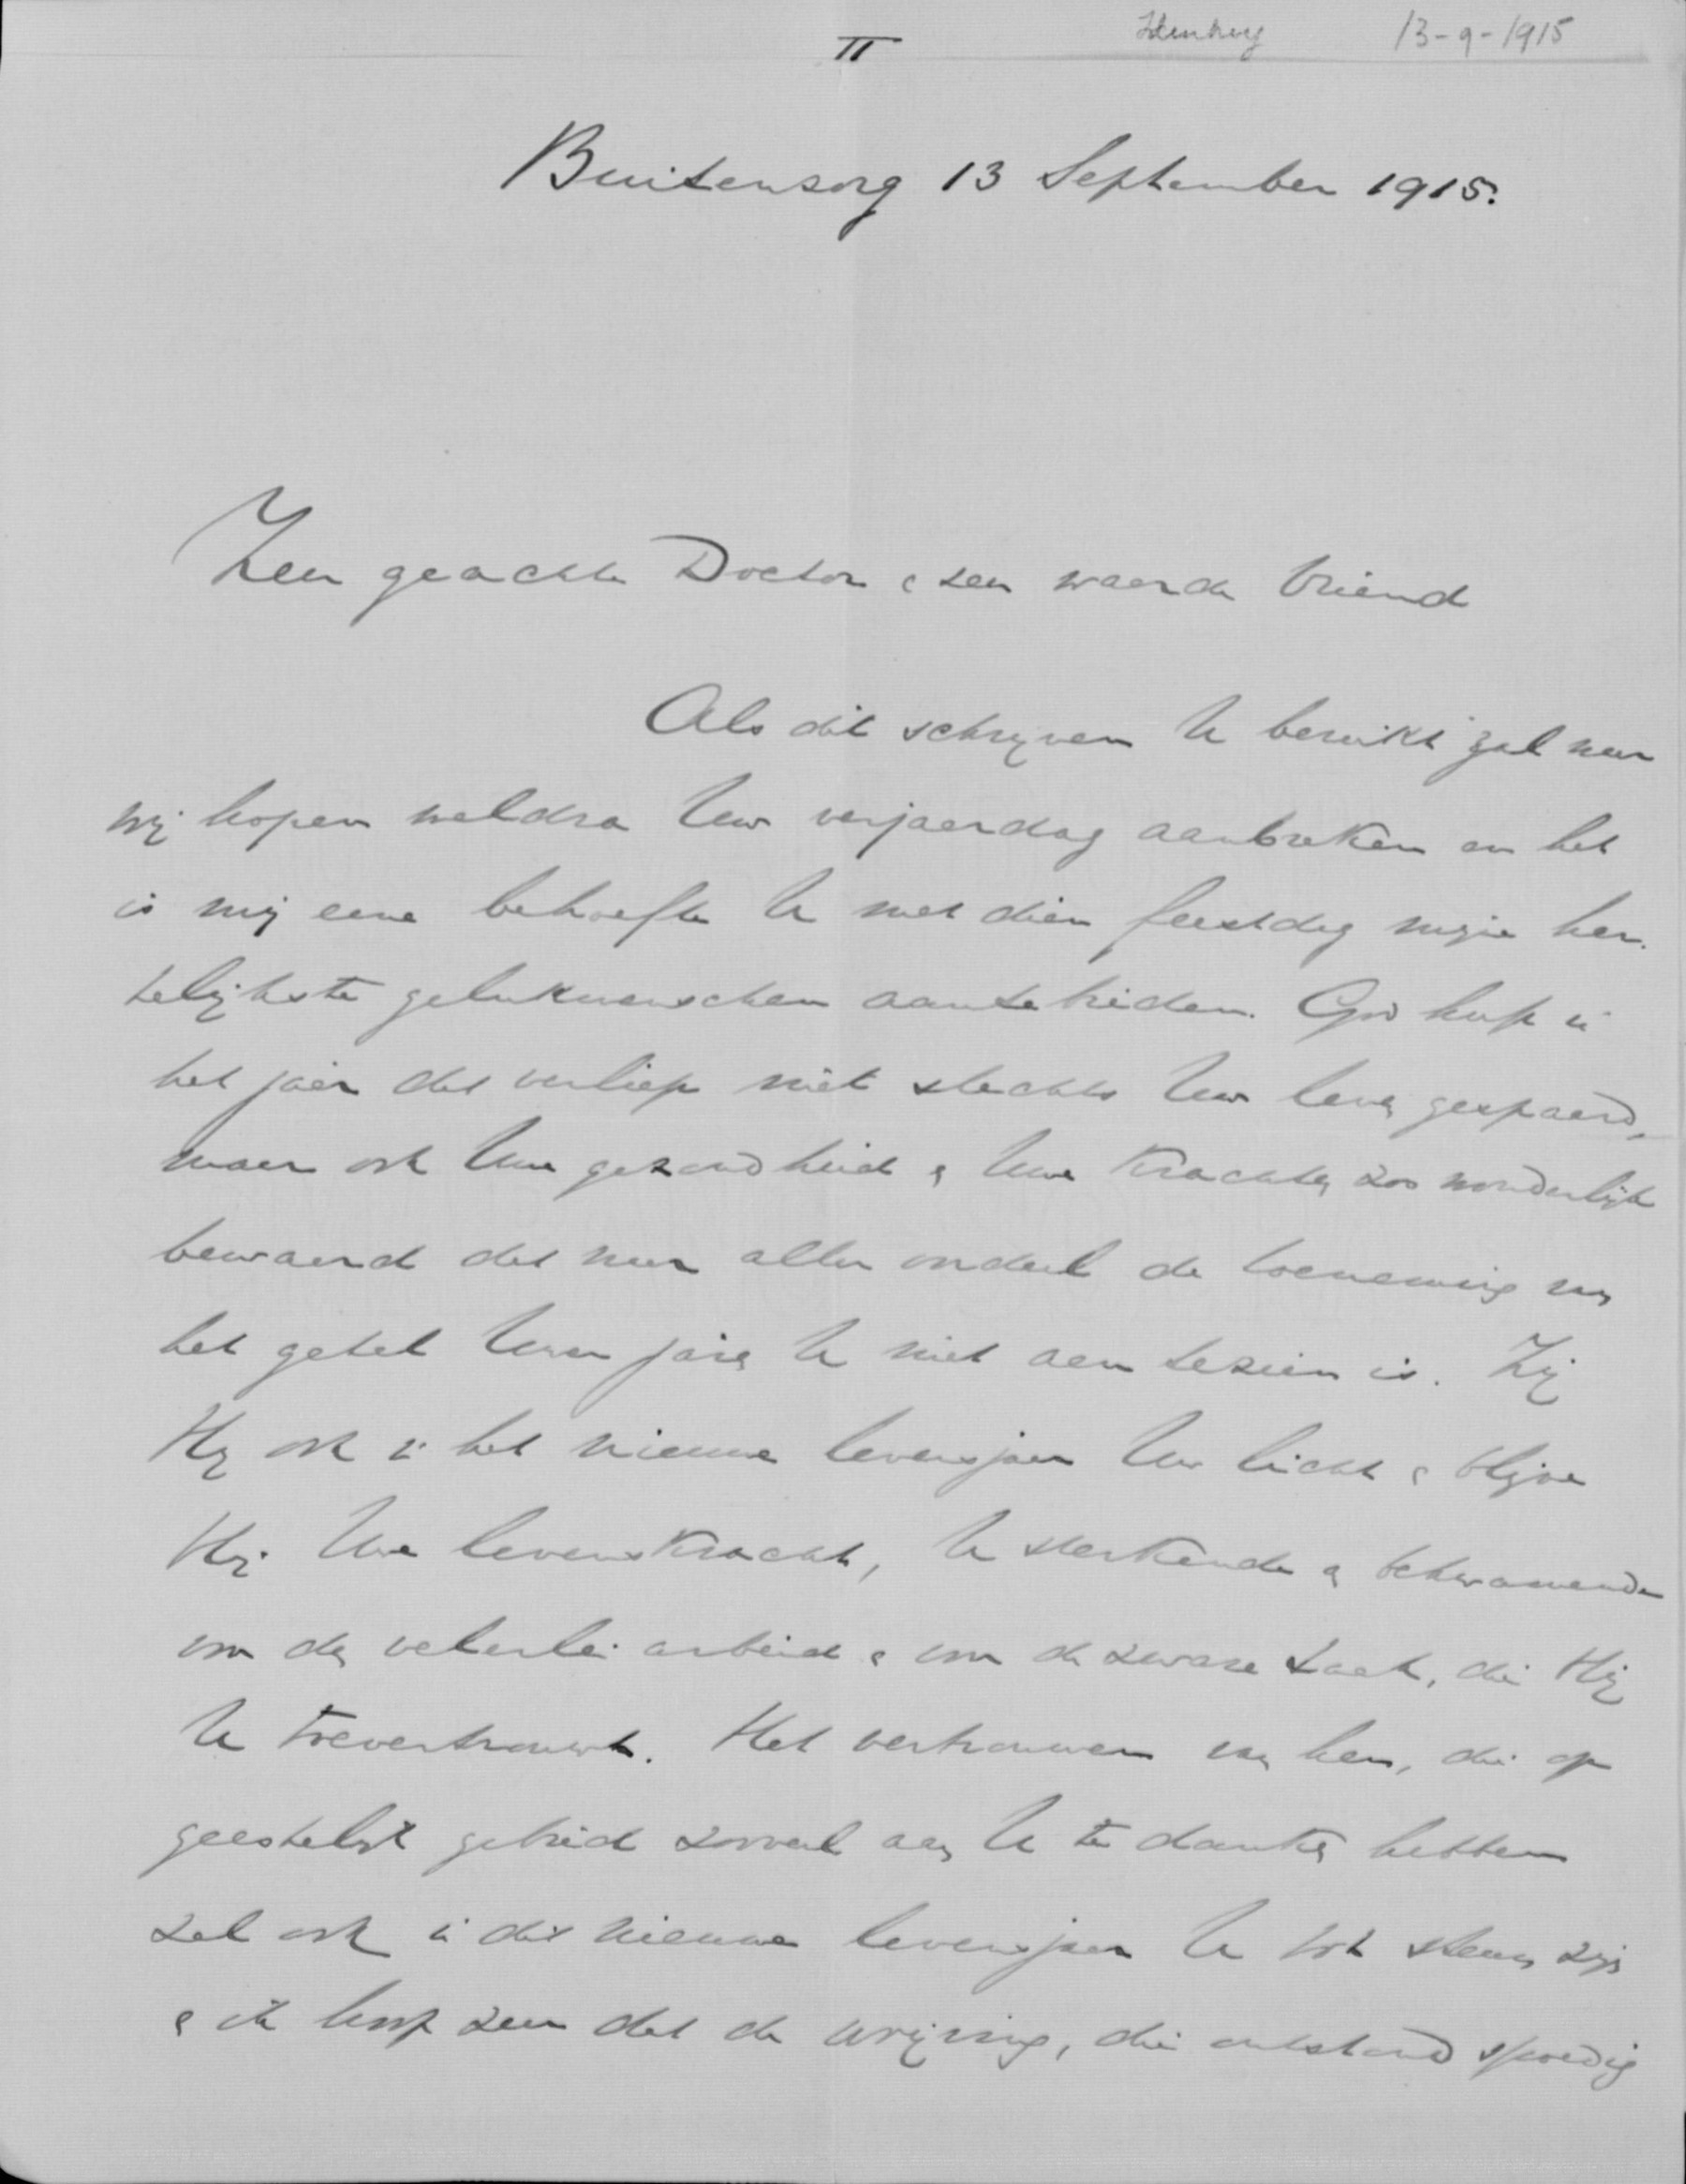 II
Idenburg 13-9-1915
Buitenzorg 13 September 1915.
Zeer geachte Doctor & zeer waarde Vriend
Als dit schrijven U bereikt zal naar
wij hopen weldra Uw verjaardag aanbreken en het
is mij eene behoefte U met dien feestdag mijne har-
telijkste gelukwenschen aantebieden. God heeft in
het jaar dat verliep niet slechts Uw leven gespaard,
maar ook Uwe gezondheid & Uwe Krachten zoo wonderlijk
bewaard dat naar aller oordeel de toeneming van
het getal Uwer jaren U niet aan tezien is. Zij
Hij ook in het nieuwe levensjaar Uw licht & blijve
Hij Uwe levensKracht, U sterkende & bekwamende
om den velerlei arbeid & om de zware taak, die Hij
U toevertrouwt. Het vertrouwen van hen, die op
geestelijk gebied zooveel aan U te danken hebben
zal ook in dit nieuwe levensjaar U tot steun zijn
& ik hoop zeer dat de wrijving, die ontstond spoedig